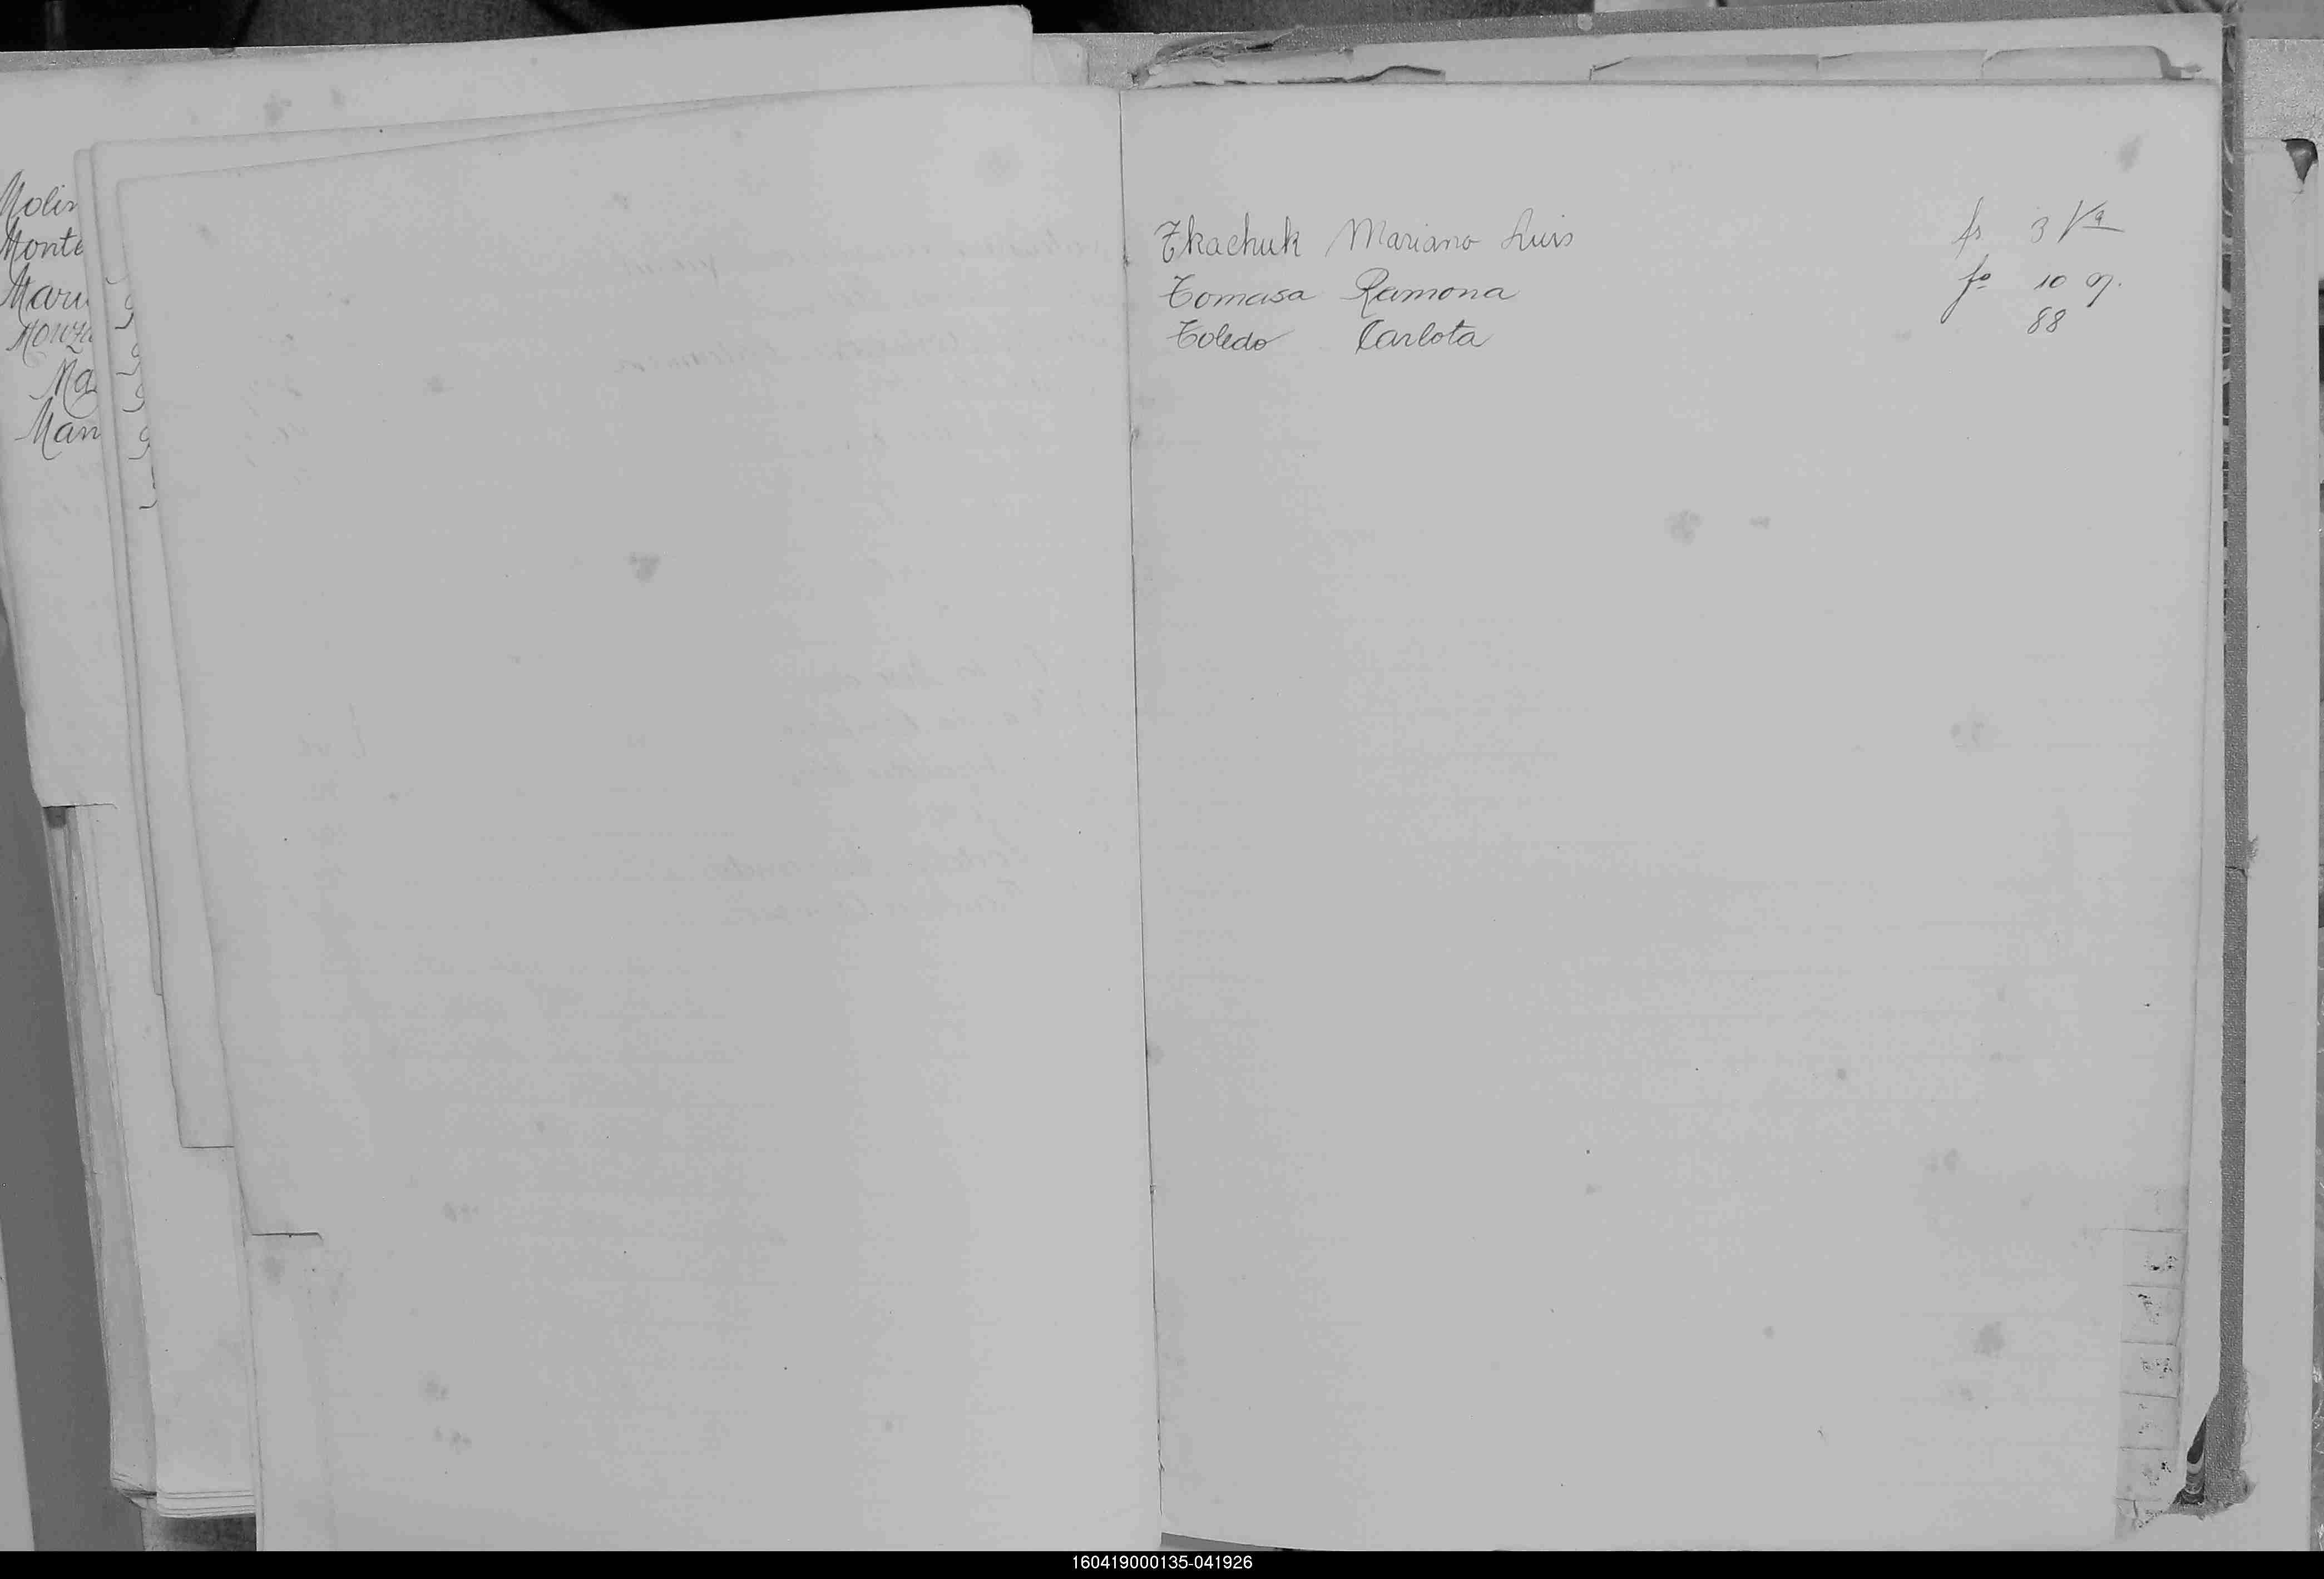 Molin
Monte
Maru
Monza
Ma
Man
Tkachuk Mariano Luis fs 3 Vª
Tomasa Ramona fº 10
Toledo Carlota 88
160419000135-041926